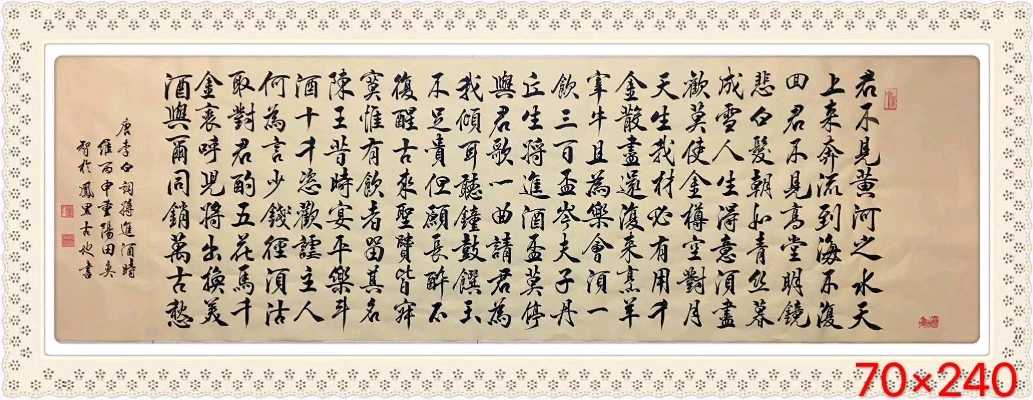 君不見黃河之水天
上来奔流到海不復
回君不見高堂明鏡
悲白髮朝如青丝暮
成雪人生得意須盡
歡莫使金樽空對月
天生我材必有用千
金散盡還復来烹羊
宰牛且為樂會須一
飲三百盃岑夫子丹
丘生將進酒盃莫停
與君歌一曲請君為
我傾耳聽鐘鼓饌玉
不足貴但願長醉不
復醒古来聖賢皆寂
寞惟有飲者留其名
陳王昔時宴平樂斗
酒十千恣歡謔主人
何為言少錢徑須沽
取對君酌五花馬千
金裘呼兒將出換美
酒與爾同銷萬古愁
唐李白詞將進酒時
维丙申重陽田
於鳳里古也書
70×240